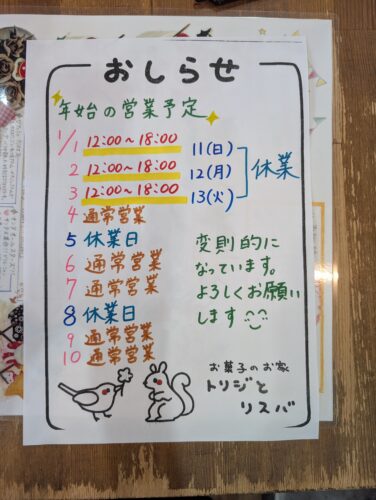 おしらせ
年始の営業予定
1/1 12:00~18:00
2 12:00~18:00
3 12:00~18:00
4 通常営業
5 休業日
6 通常営業
7 通常営業
8 休業日
9 通常営業
10 通常営業
11(日)
12(月)
13(火)
休業
変則的に
なっています。
よろしくお願い
します
お菓子のお家
トリジと
リスバ